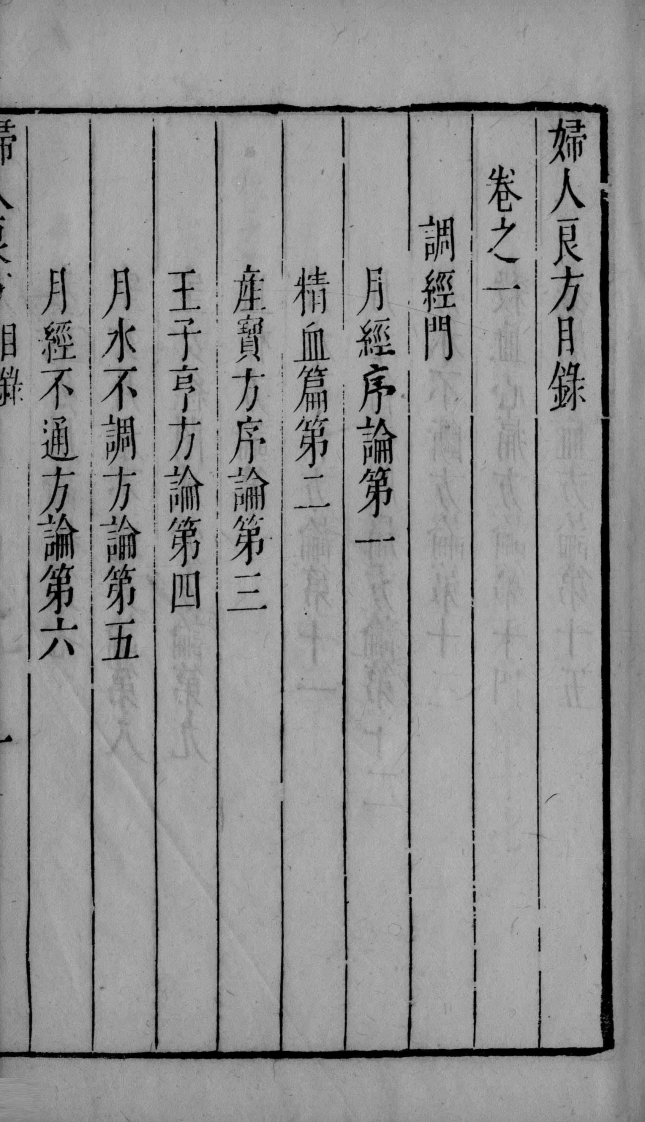 婦人良方目錄
卷之一
調經門
月經序論第一
精血篇第二
產寶方序論第三
王子亨方論第四
月水不調方論第五
月經不通方論第六
婦人良方目錄 一